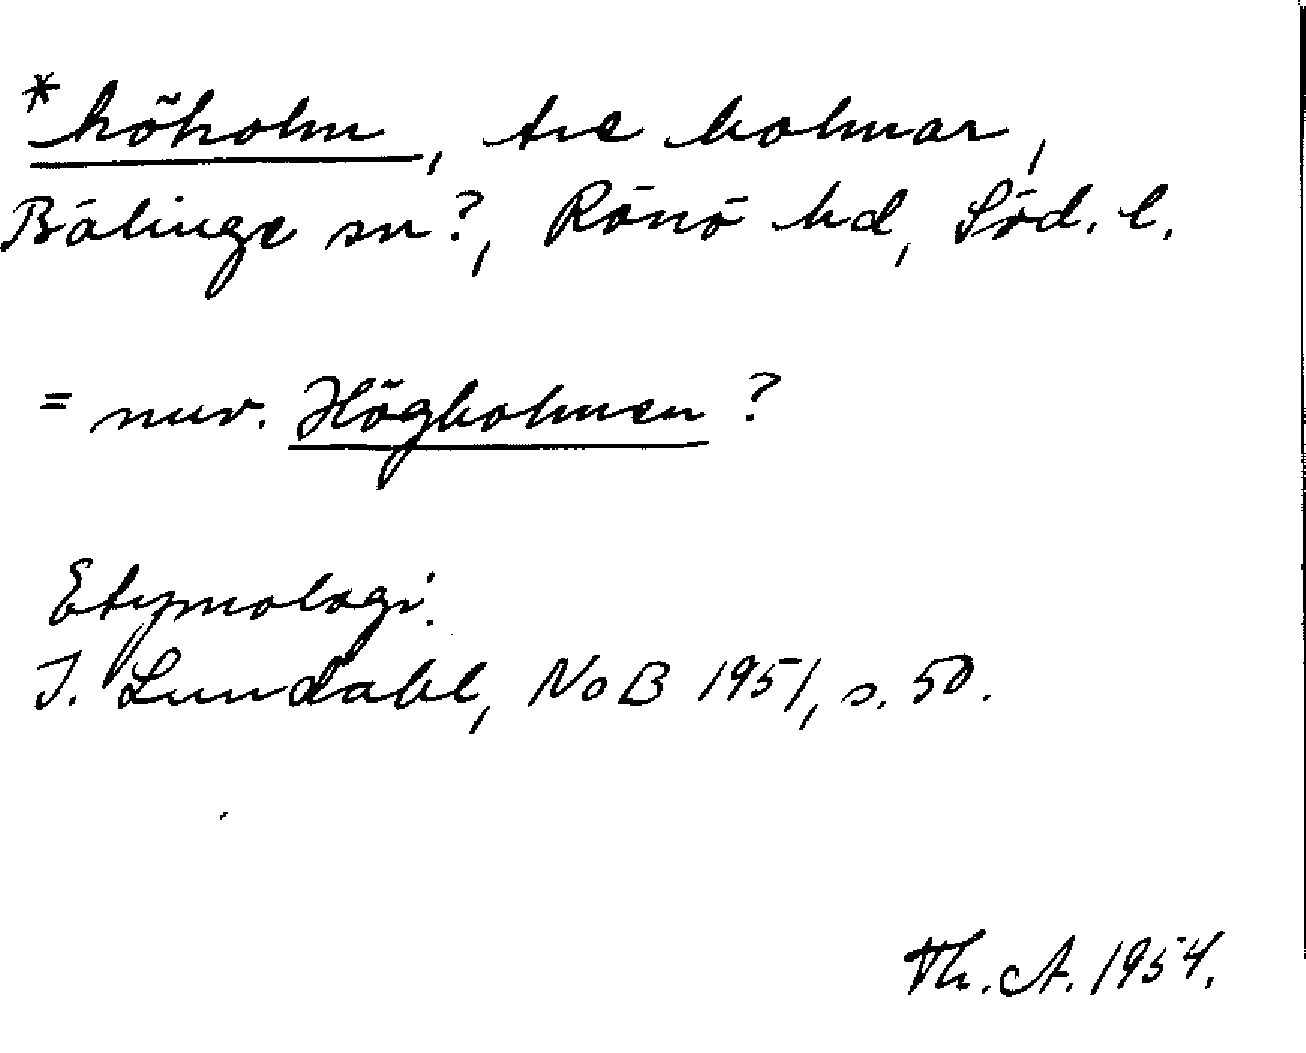 *höholm, tre holmar,
Bälinge sn?, Rönö hd, Söd. l.
= nuv. Högholmen ?
Etymologi:
I. Lundahl, NoB 1951, s. 50.
Th. A. 1954.